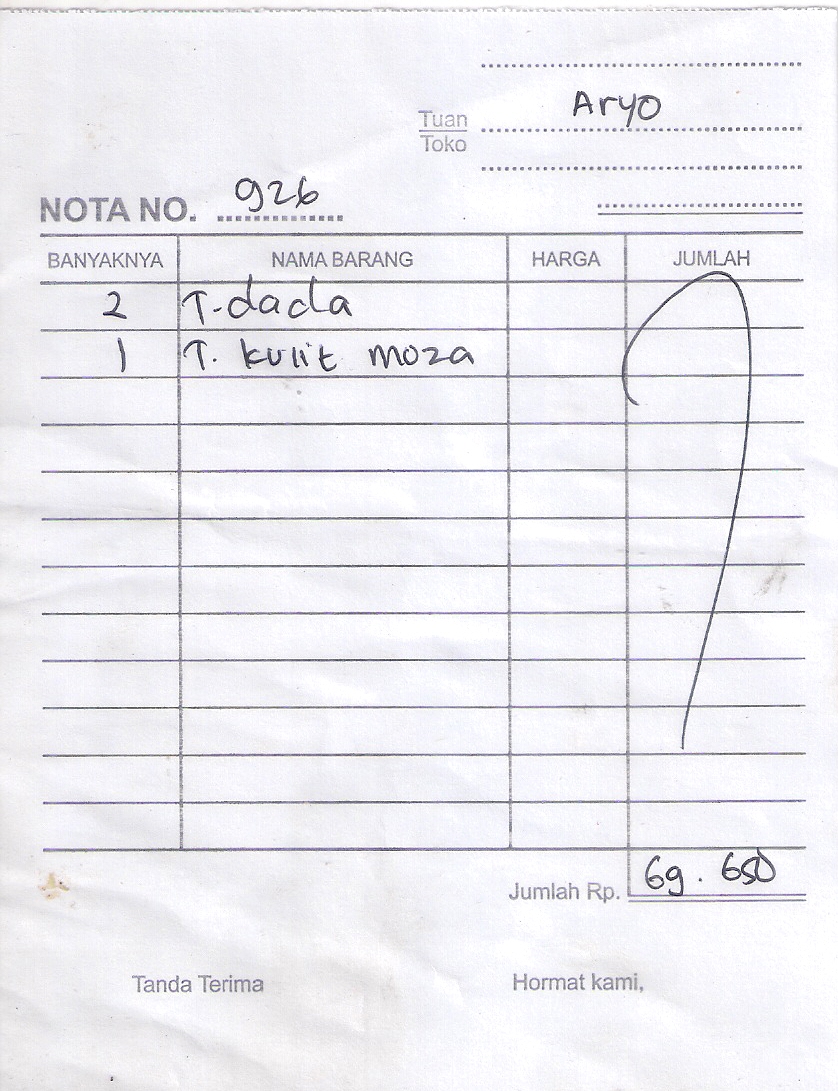 Aryo
Tuan
Toko
NOTA NO. 926
BANYAKNYA NAMA BARANG HARGA JUMLAH
2 T.dada
1 T. kulit moza
Jumlah Rp. 69.650
Tanda Terima Hormat kami,